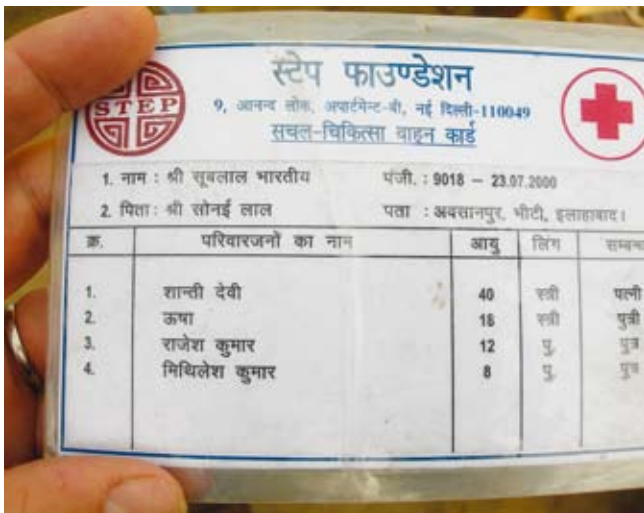 स्टेप फाउण्डेशन
STEP
9, आनन्द लोक, अपार्टमेन्ट-बी, नई दिल्ली-110049
सचल-चिकित्सा वाहन कार्ड
1. नाम : श्री सूबलाल भारतीय पंजी. : 9018 – 23.07.2000
2. पिता : श्री सोनई लाल पता : अवसानपुर, भीटी, इलाहाबाद।
क्र. परिवारजनों का नाम आयु लिंग सम्बन्ध
1. शान्ती देवी 40 स्त्री पत्नी
2. ऊषा 18 स्त्री पुत्री
3. राजेश कुमार 12 पु. पुत्र
4. मिथिलेश कुमार 8 पु. पुत्र